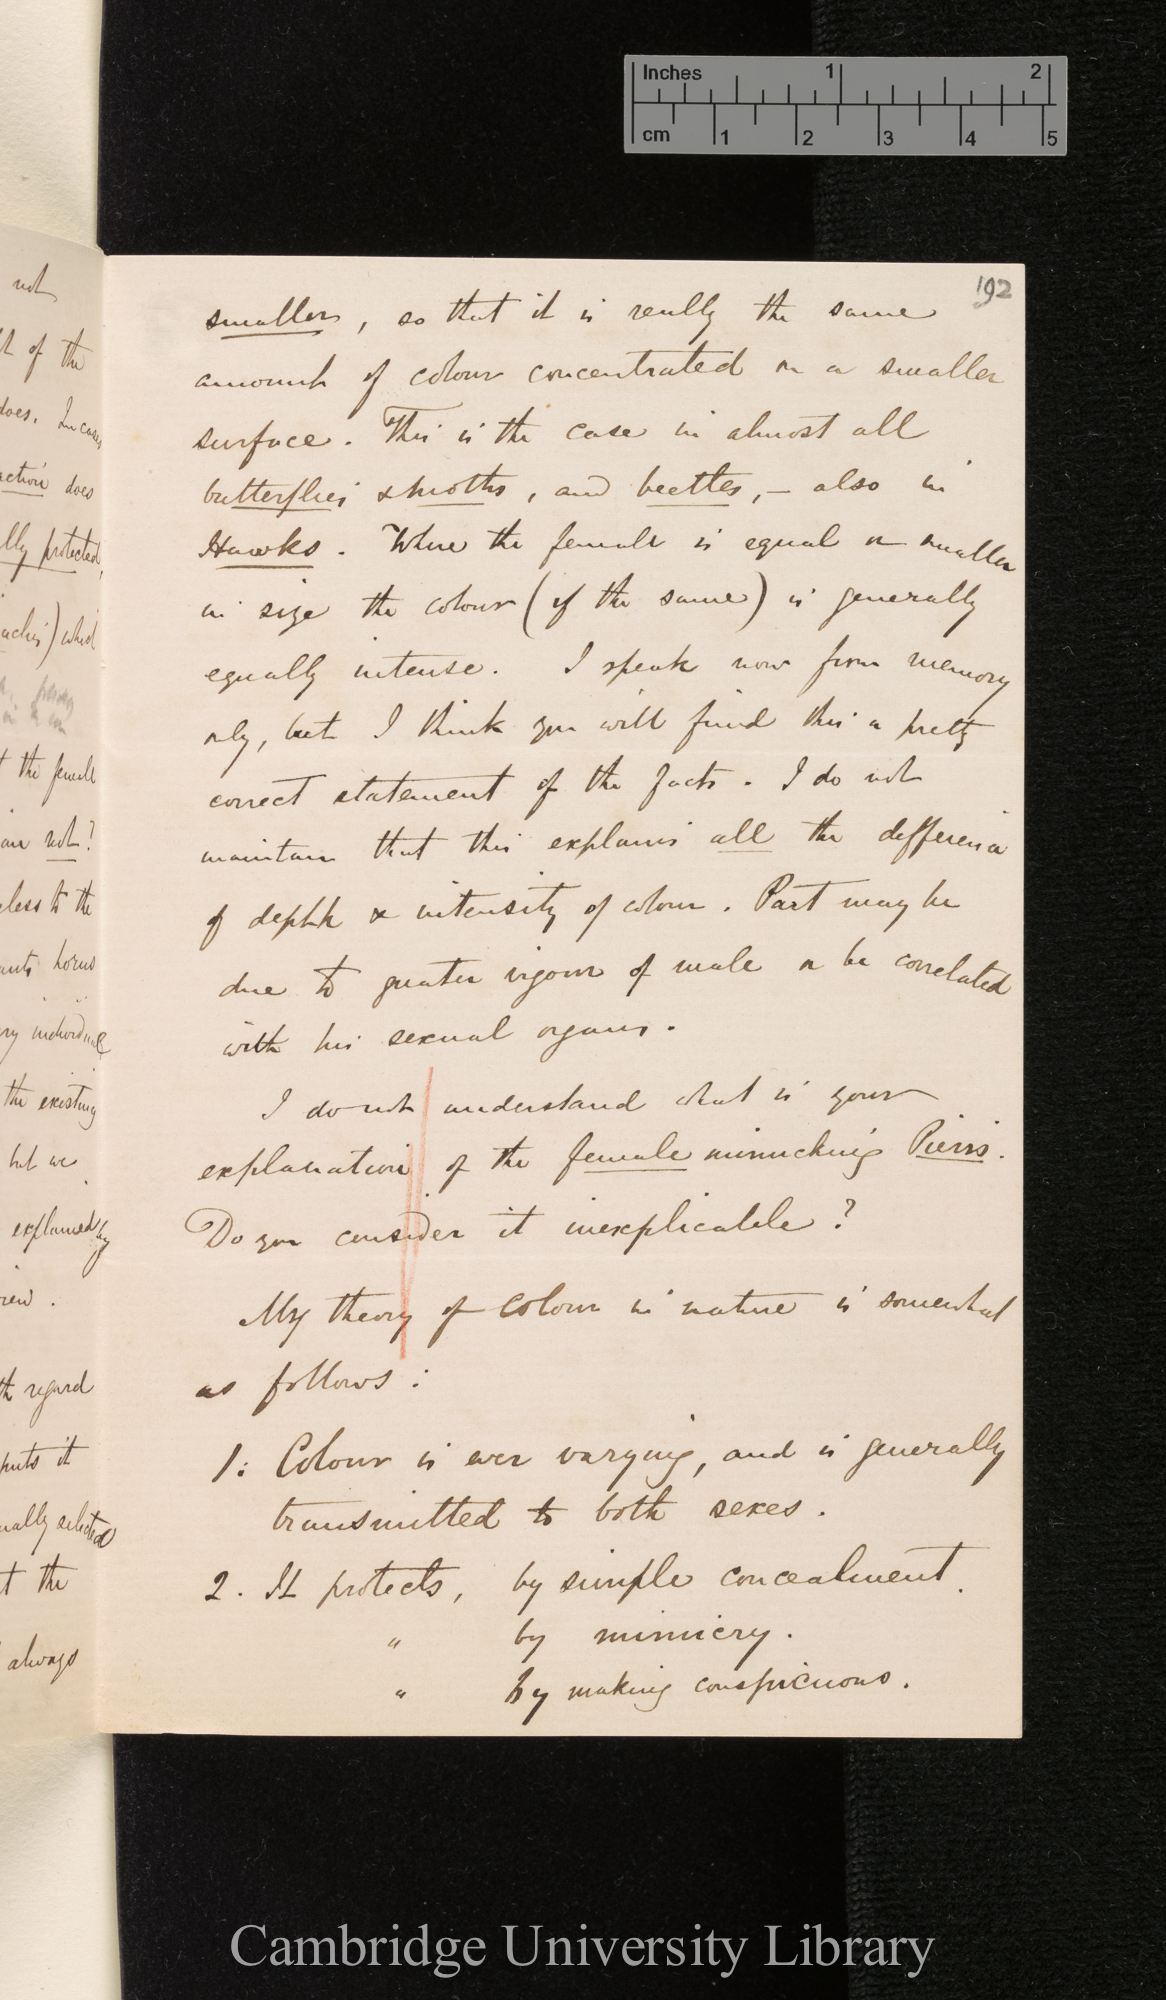 Inches 1 2
cm 1 2 3 4 5
192
not
of the
does. In cases
action does
lly protected,
which
t the female
are not?
eless to the
ants horns
ry individual
the existing
but we
explained by
view.
th regard
puts it
ually selected
t the
always
smaller, so that it is really the same
amount of colour concentrated on a smaller
surface. This is the case in almost all
butterflies & moths, and beetles, – also in
Hawks. Where the female is equal or smaller
in size the colour (if the same) is generally
equally intense. I speak now from memory
only, but I think you will find this a pretty
correct statement of the facts. I do not
maintain that this explains all the difference
of depth & intensity of colour. Part may be
due to greater vigour of male or be correlated
with his sexual organs.
I do not understand what is your
explanation of the female mimicking Pieris.
Do you consider it inexplicable?
My theory of colour in nature is somewhat
as follows:
1: Colour is ever varying, and is generally
transmitted to both sexes.
2. It protects, by simple concealment.
" by mimicry.
" by making conspicuous.
Cambridge University Library